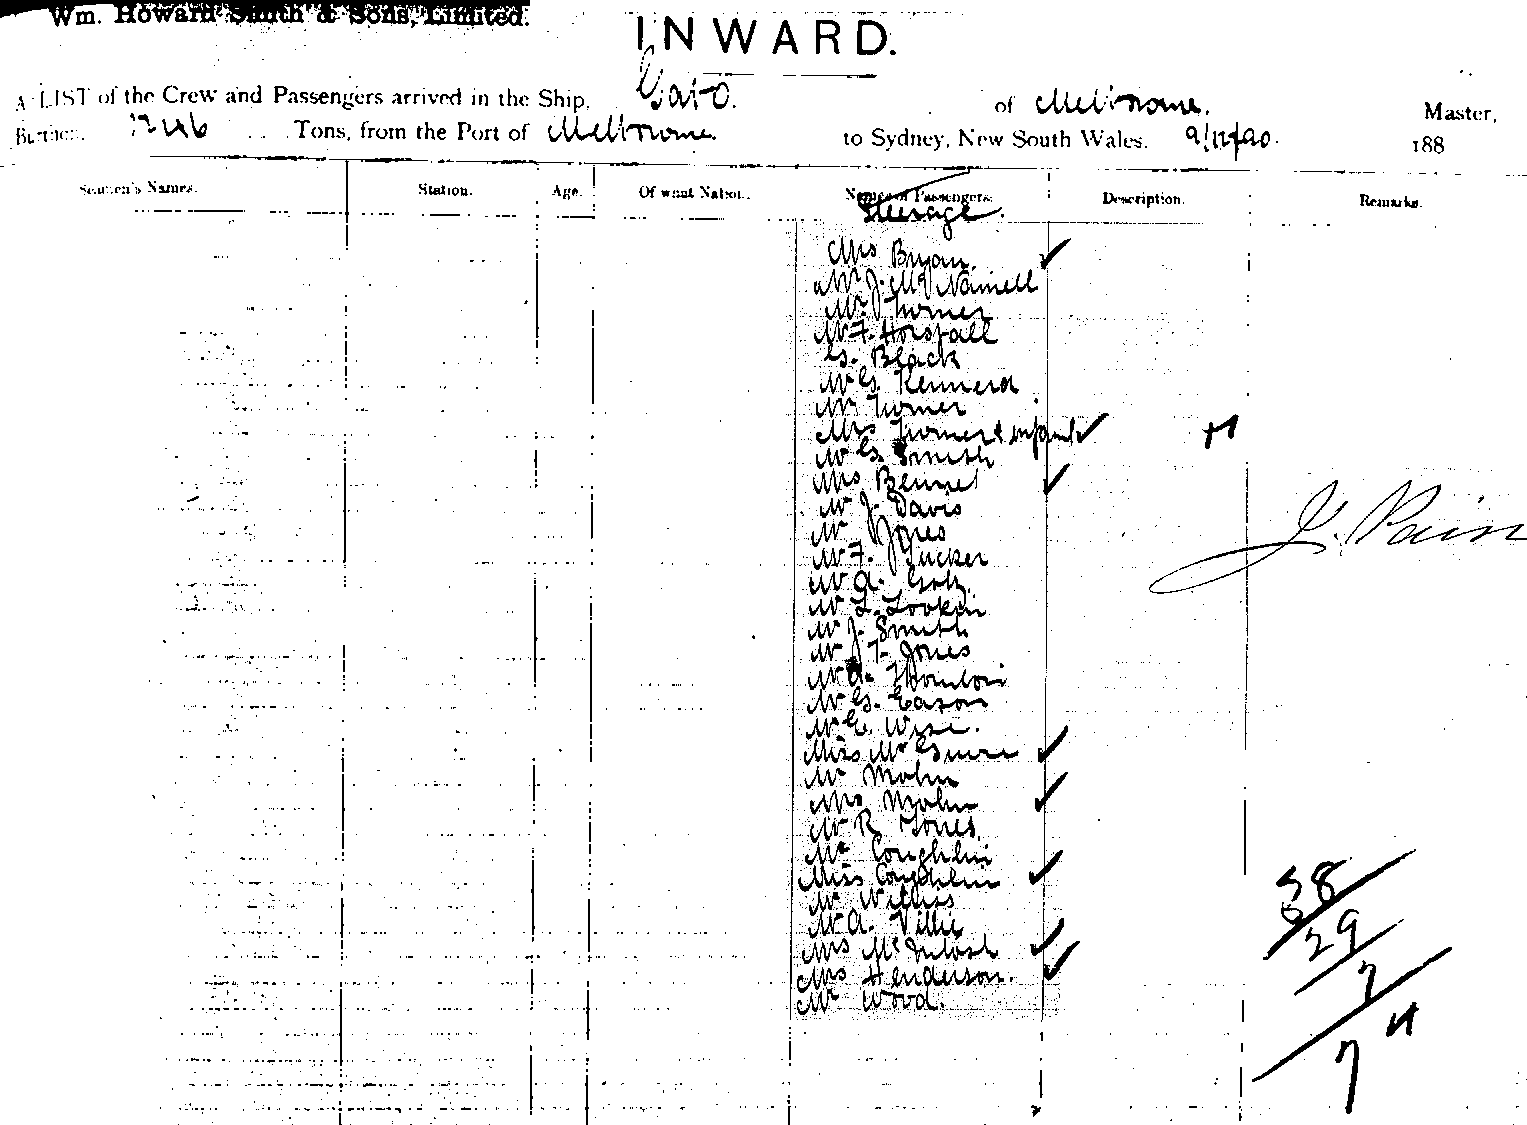 Wm. Howard Smith & Sons, Limited.
INWARD.
A LIST of the Crew and Passengers arrived in the Ship, Gabo. of Melbourne. Master,
Burthen. Tons, from the Port of Melbourne to Sydney, New South Wales. 9/12/90. 188
Seamen's Names. Station. Age. Of what Nation. Names of Passengers. Description. Remarks.
Steerage.
Mrs Bryan.
Mr J. Mc
Mr Turner
Mr F. Horsfall
G. Black
Mr G. Kennerd
Mr Turner
Mrs Turner & infant
Mr G. Smith
Mrs Bennet
Mr J. Davis
Mr Jones
Mr F. Tucker
Mr A.
Mr L.
Mr J. Smith
Mr J. T. Jones
Mr A.
Mr G. Eason
Mr E. Wise.
Miss Mc
Mr Molin
Mrs Molin
Mr R Jones
Mr Coughlin
Miss Coughlin
Mr Williss
Mr A. Villie
Mrs McIntosh
Mrs Henderson.
Mr Wood.
J. Pain
38
29
7
7